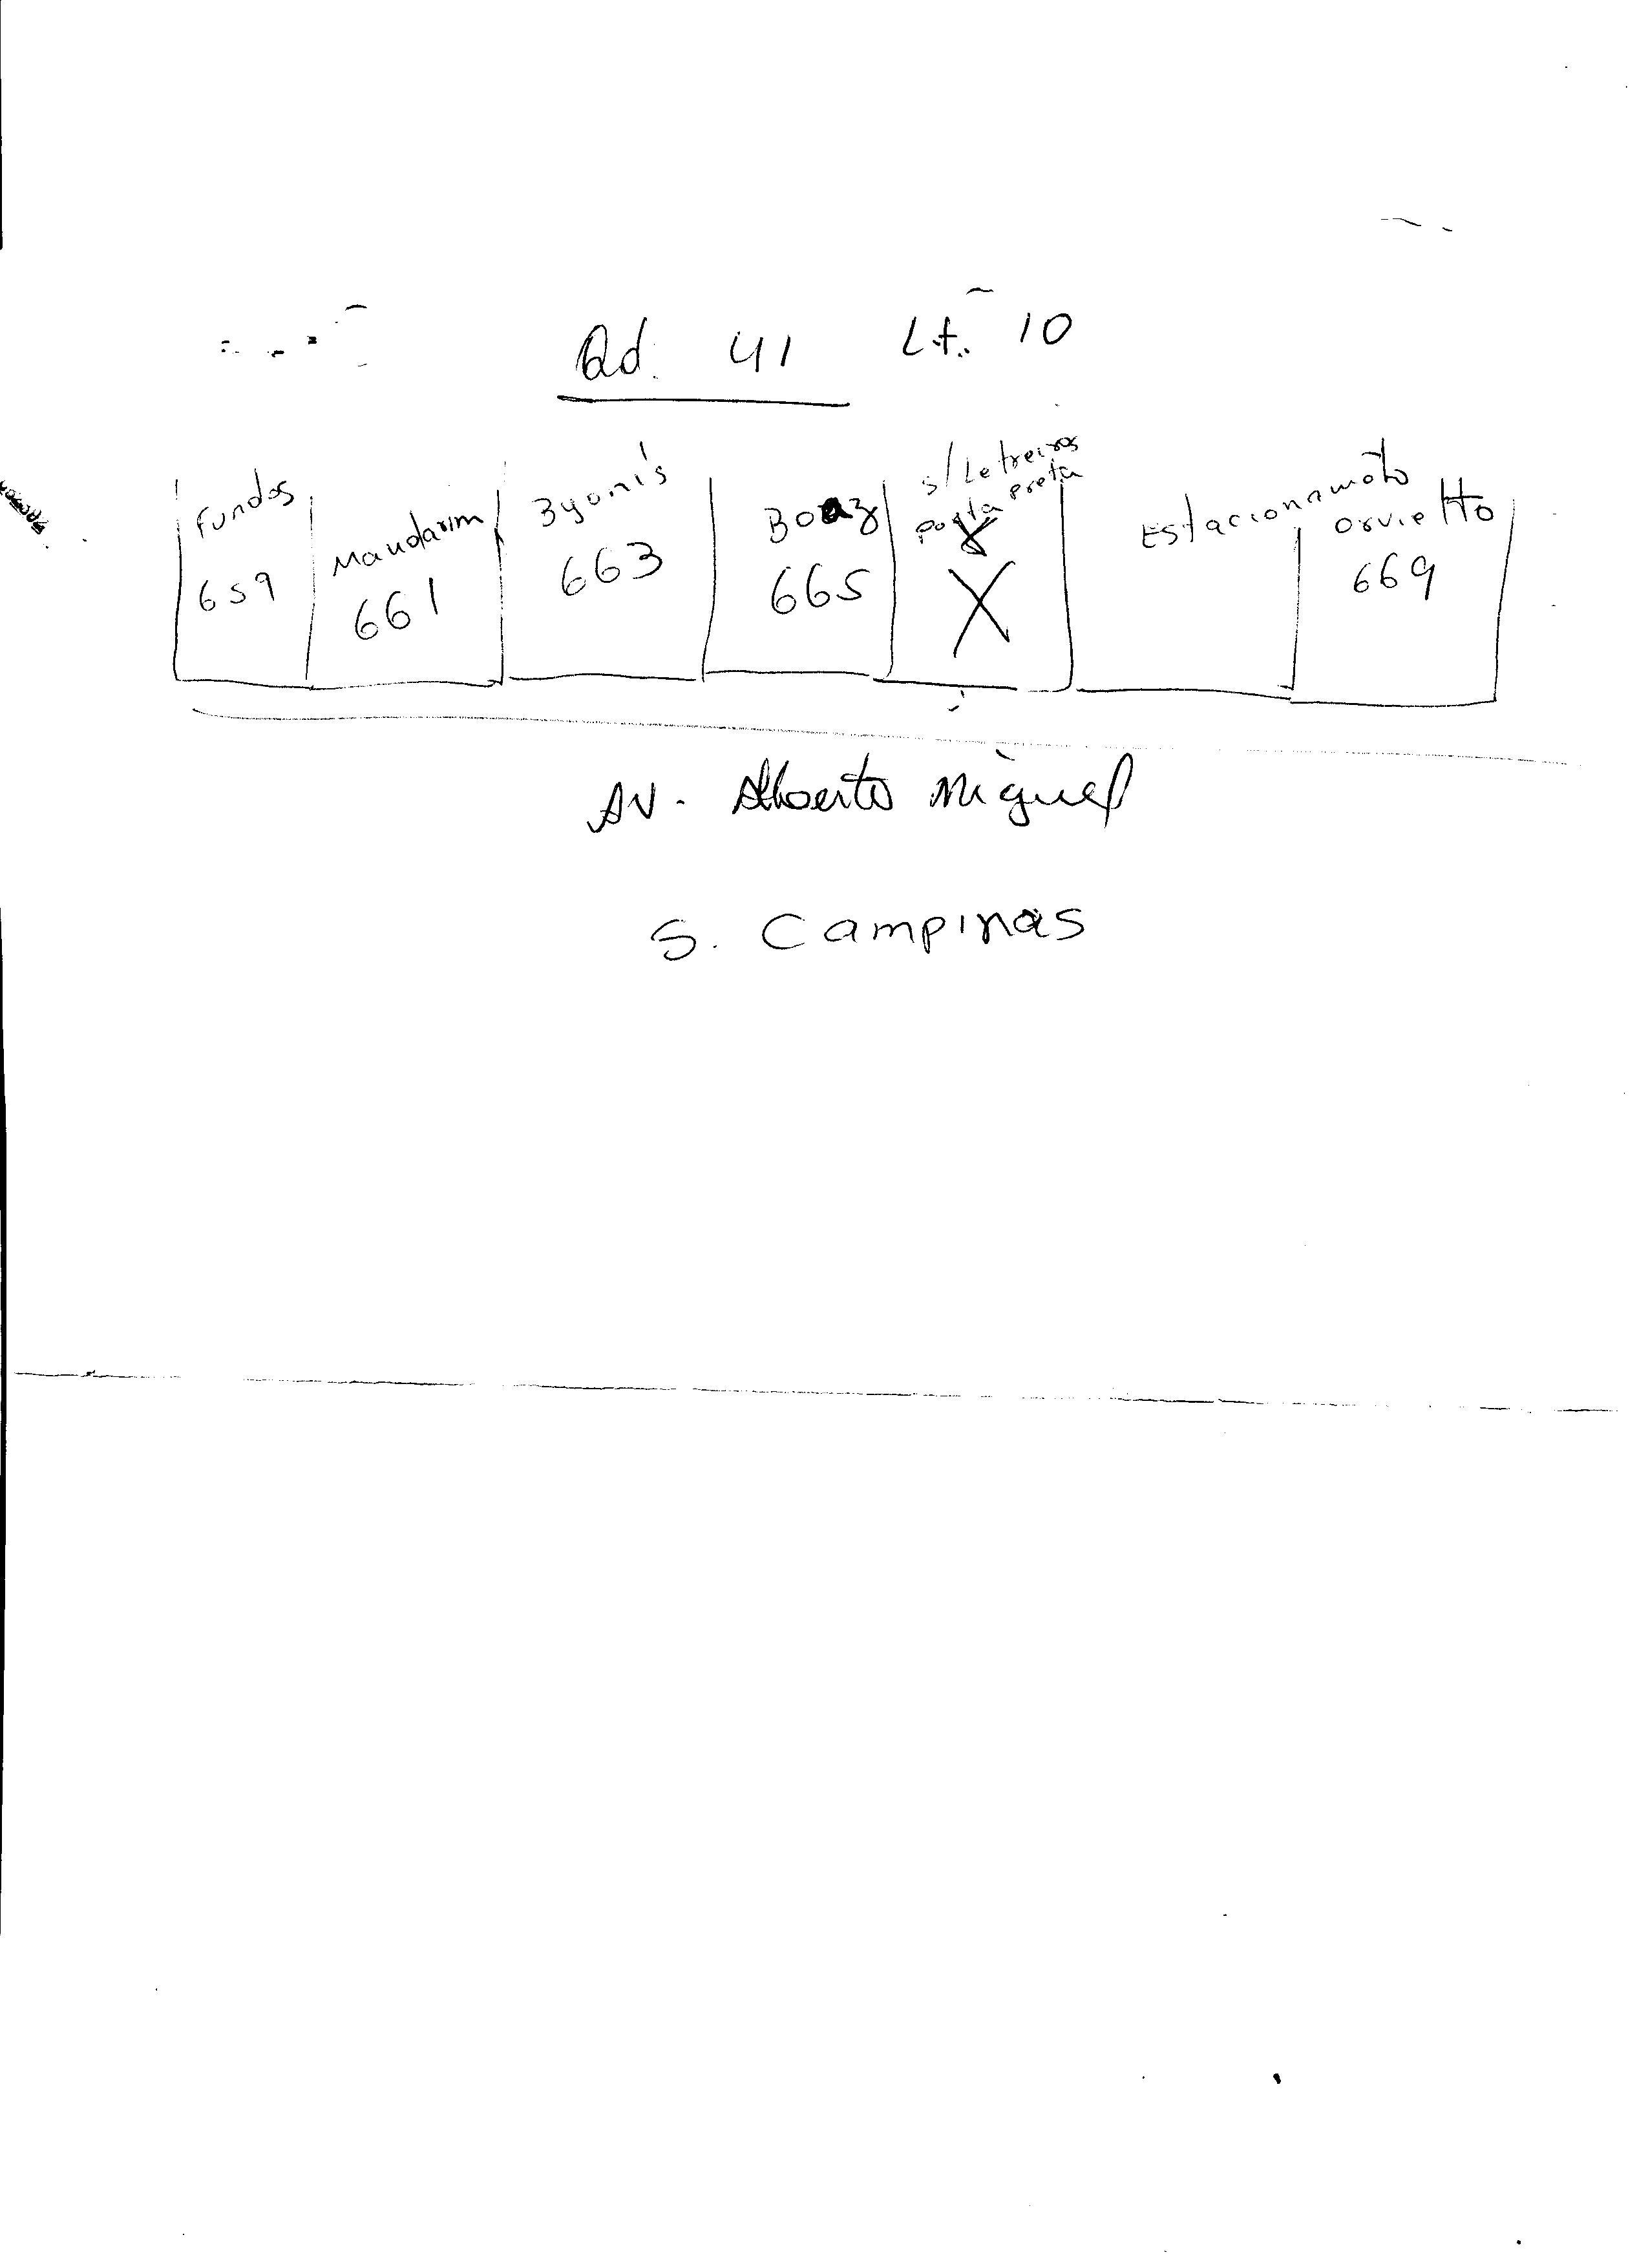 Qd. 41 Lt. 10
Fundos
659
Mandarim
661
3yoni's
663
Boaz
665
s/ Letreiros
porta preta
X
Estacionamoto
Orvietto
669
AV. Alberto Miguel
S. Campinas